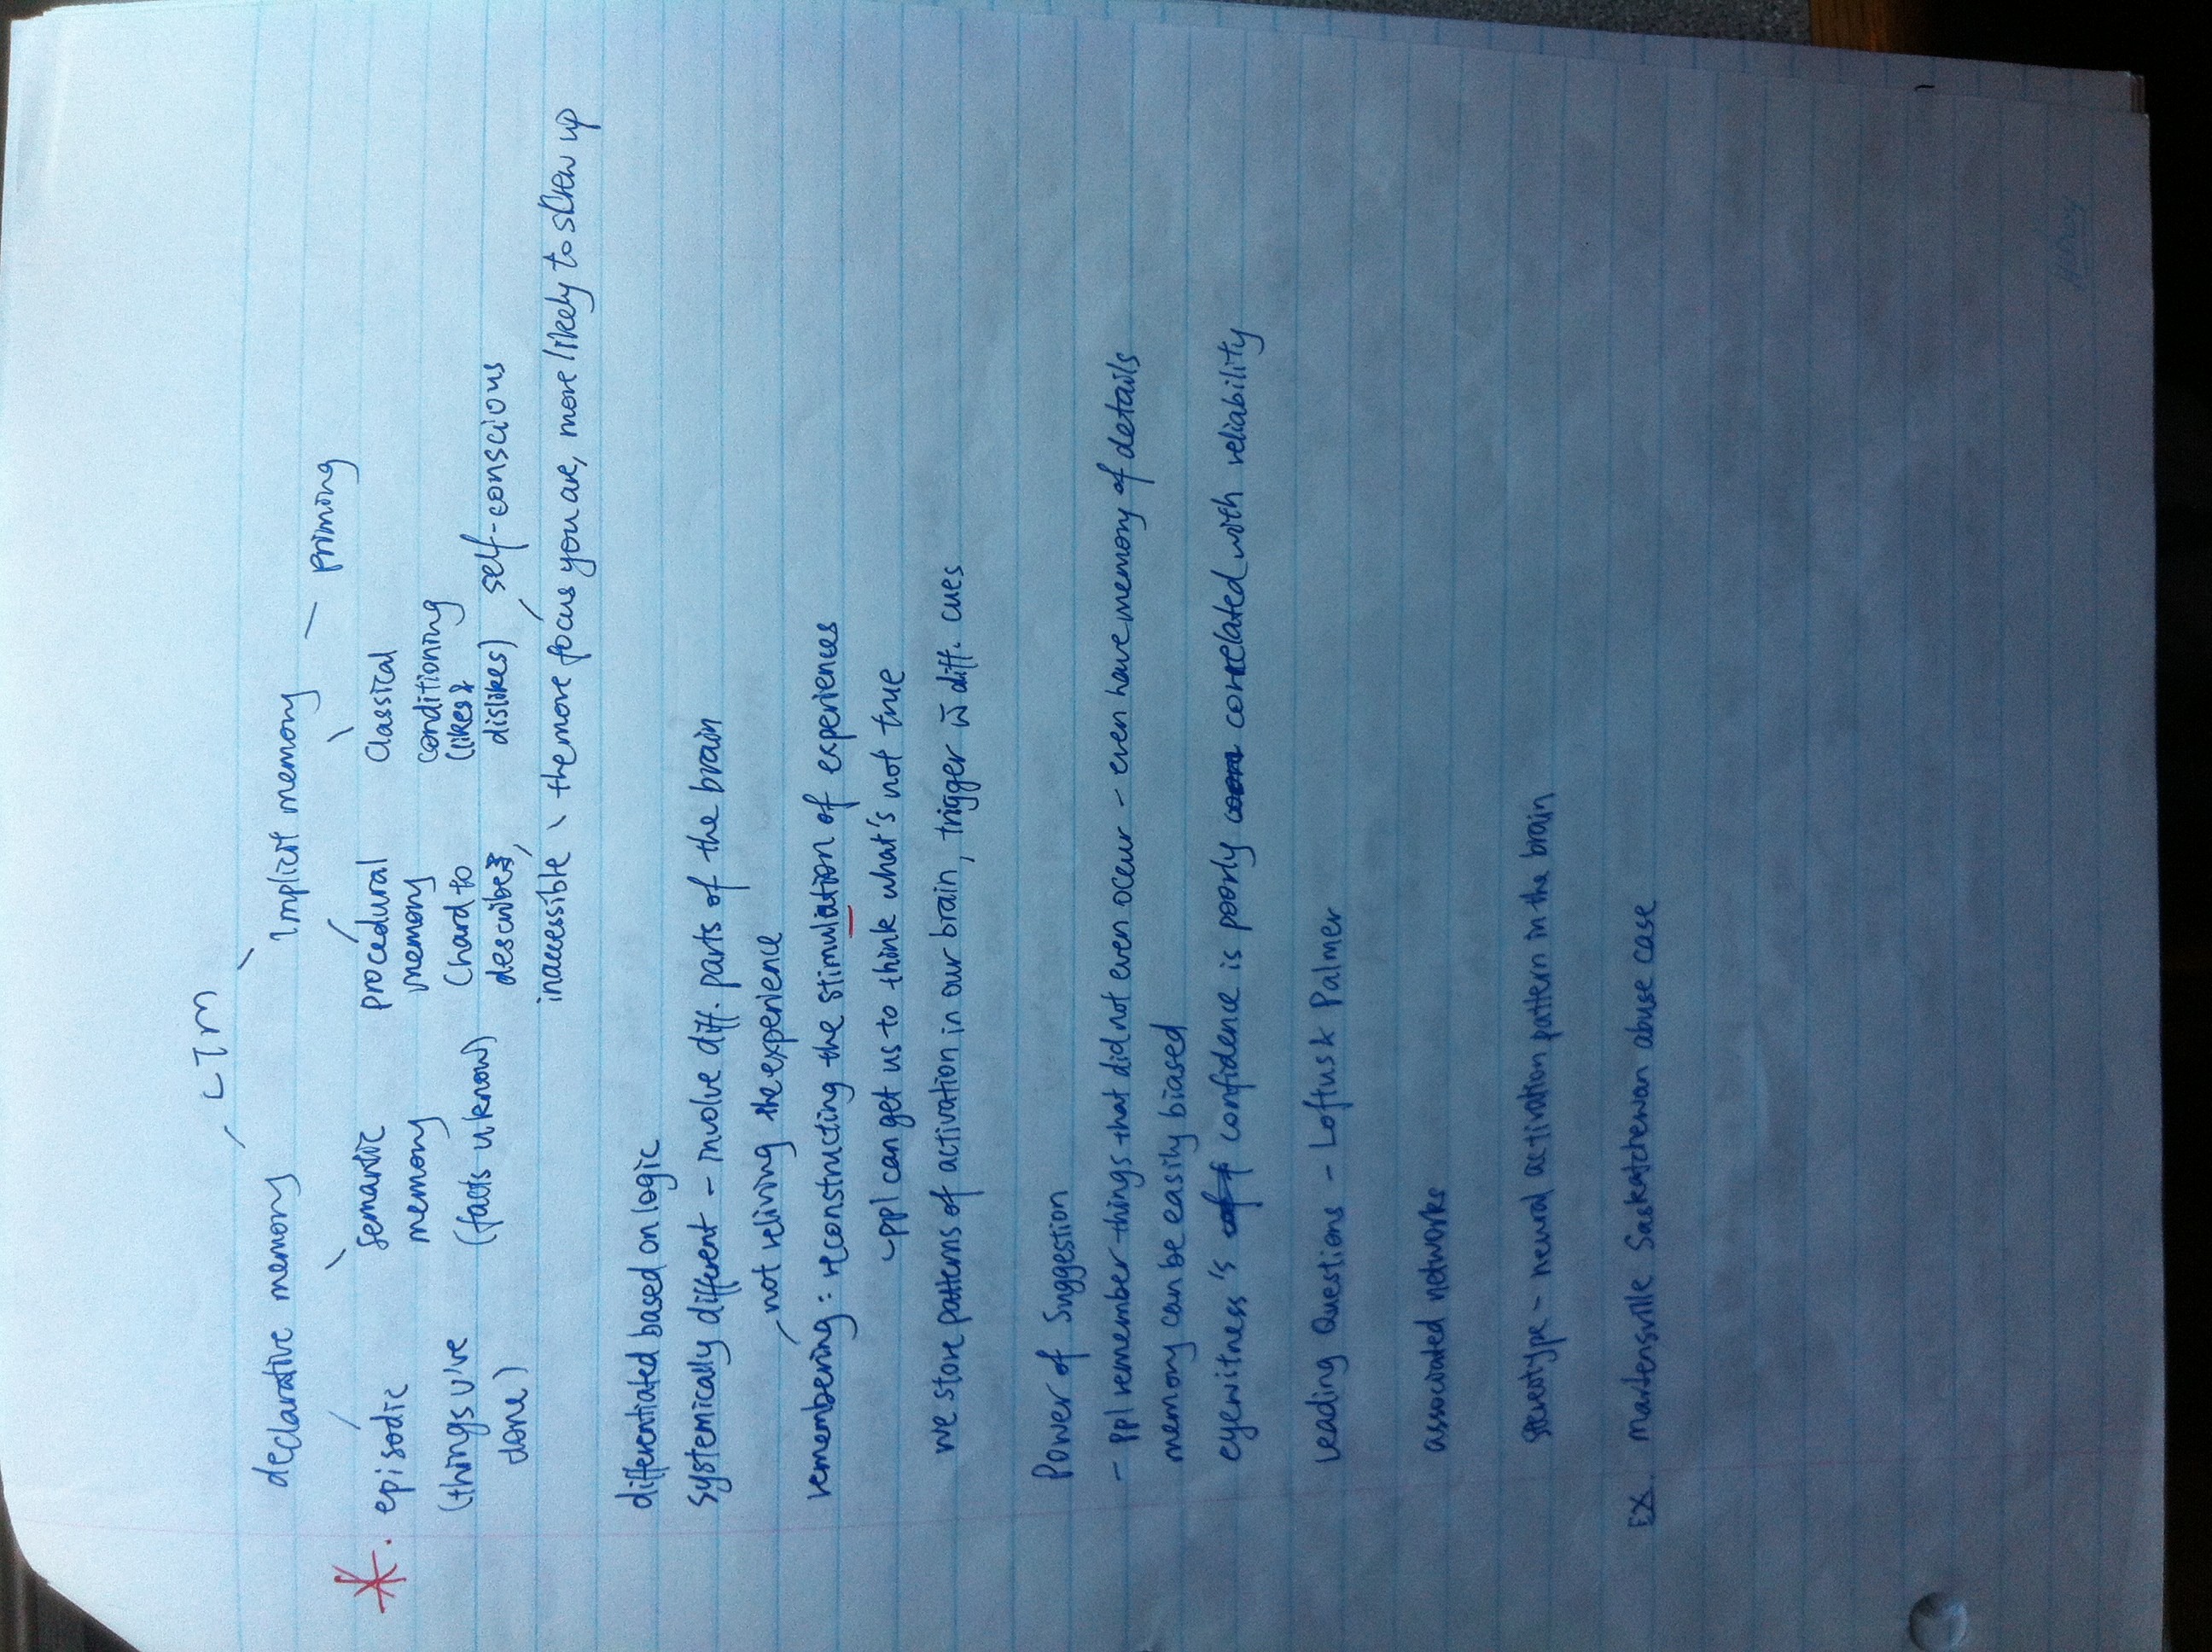 LTM
declarative memory
Implicit memory
priming
* . episodic
(things u've
done)
semantic
memory
(facts u know)
procedural
memory
(hard to
describe,
inaccessible
classical
conditioning
(likes &
dislikes)
self-conscious
the more focus you are, more likely to screw up
differentiated based on logic
systemically different - involve diff. parts of the brain
not reliving the experience
remembering: reconstructing the stimulation of experiences
- ppl can get us to think what's not true
we store patterns of activation in our brain, trigger w̄ diff. cues
Power of Suggestion
- ppl remember things that did not even occur - even have memory of details
memory can be easily biased
eyewitness's confidence is poorly correlated with reliability
Leading Questions - Loftus & Palmer
associated networks
stereotype - neural activation pattern in the brain
EX. Martensville Saskatchewan abuse case
Hilroy